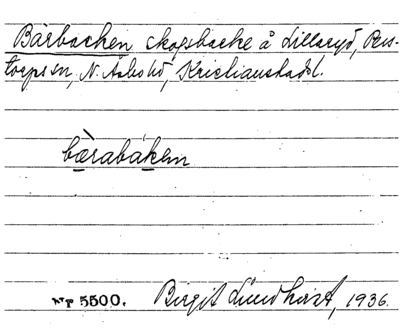 Bärbacken skogsbacke å Lillaryd, Pers-
torps sn, N. Åsbo hd, Kristianstads l.
bæ̀rabákᴇn
Nr F 5500. Birgit Lundkvist, 1936.